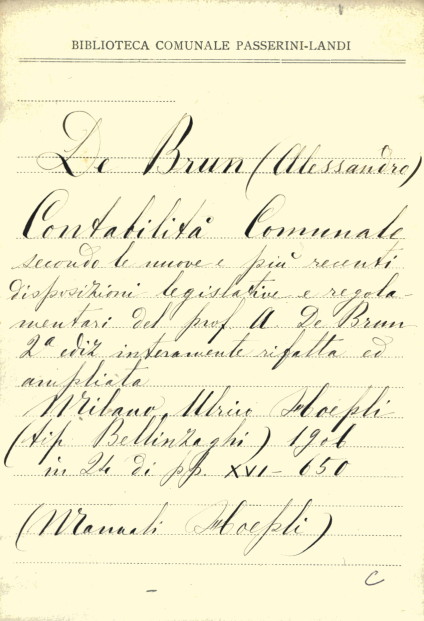 BIBLIOTECA COMUNALE PASSERINI-LANDI
De Brun (Alessandro)
Contabilità Comunale
secondo le nuove e più recenti
disposizioni legislative e regola-
mentari del prof A. De Brun
2ª ediz interamente rifatta ed
ampliata
Milano, Ulrico Hoepli
(tip. Bellinzaghi) 1906
in 24 di pp. XVI-650
(Manuali Hoepli)
C